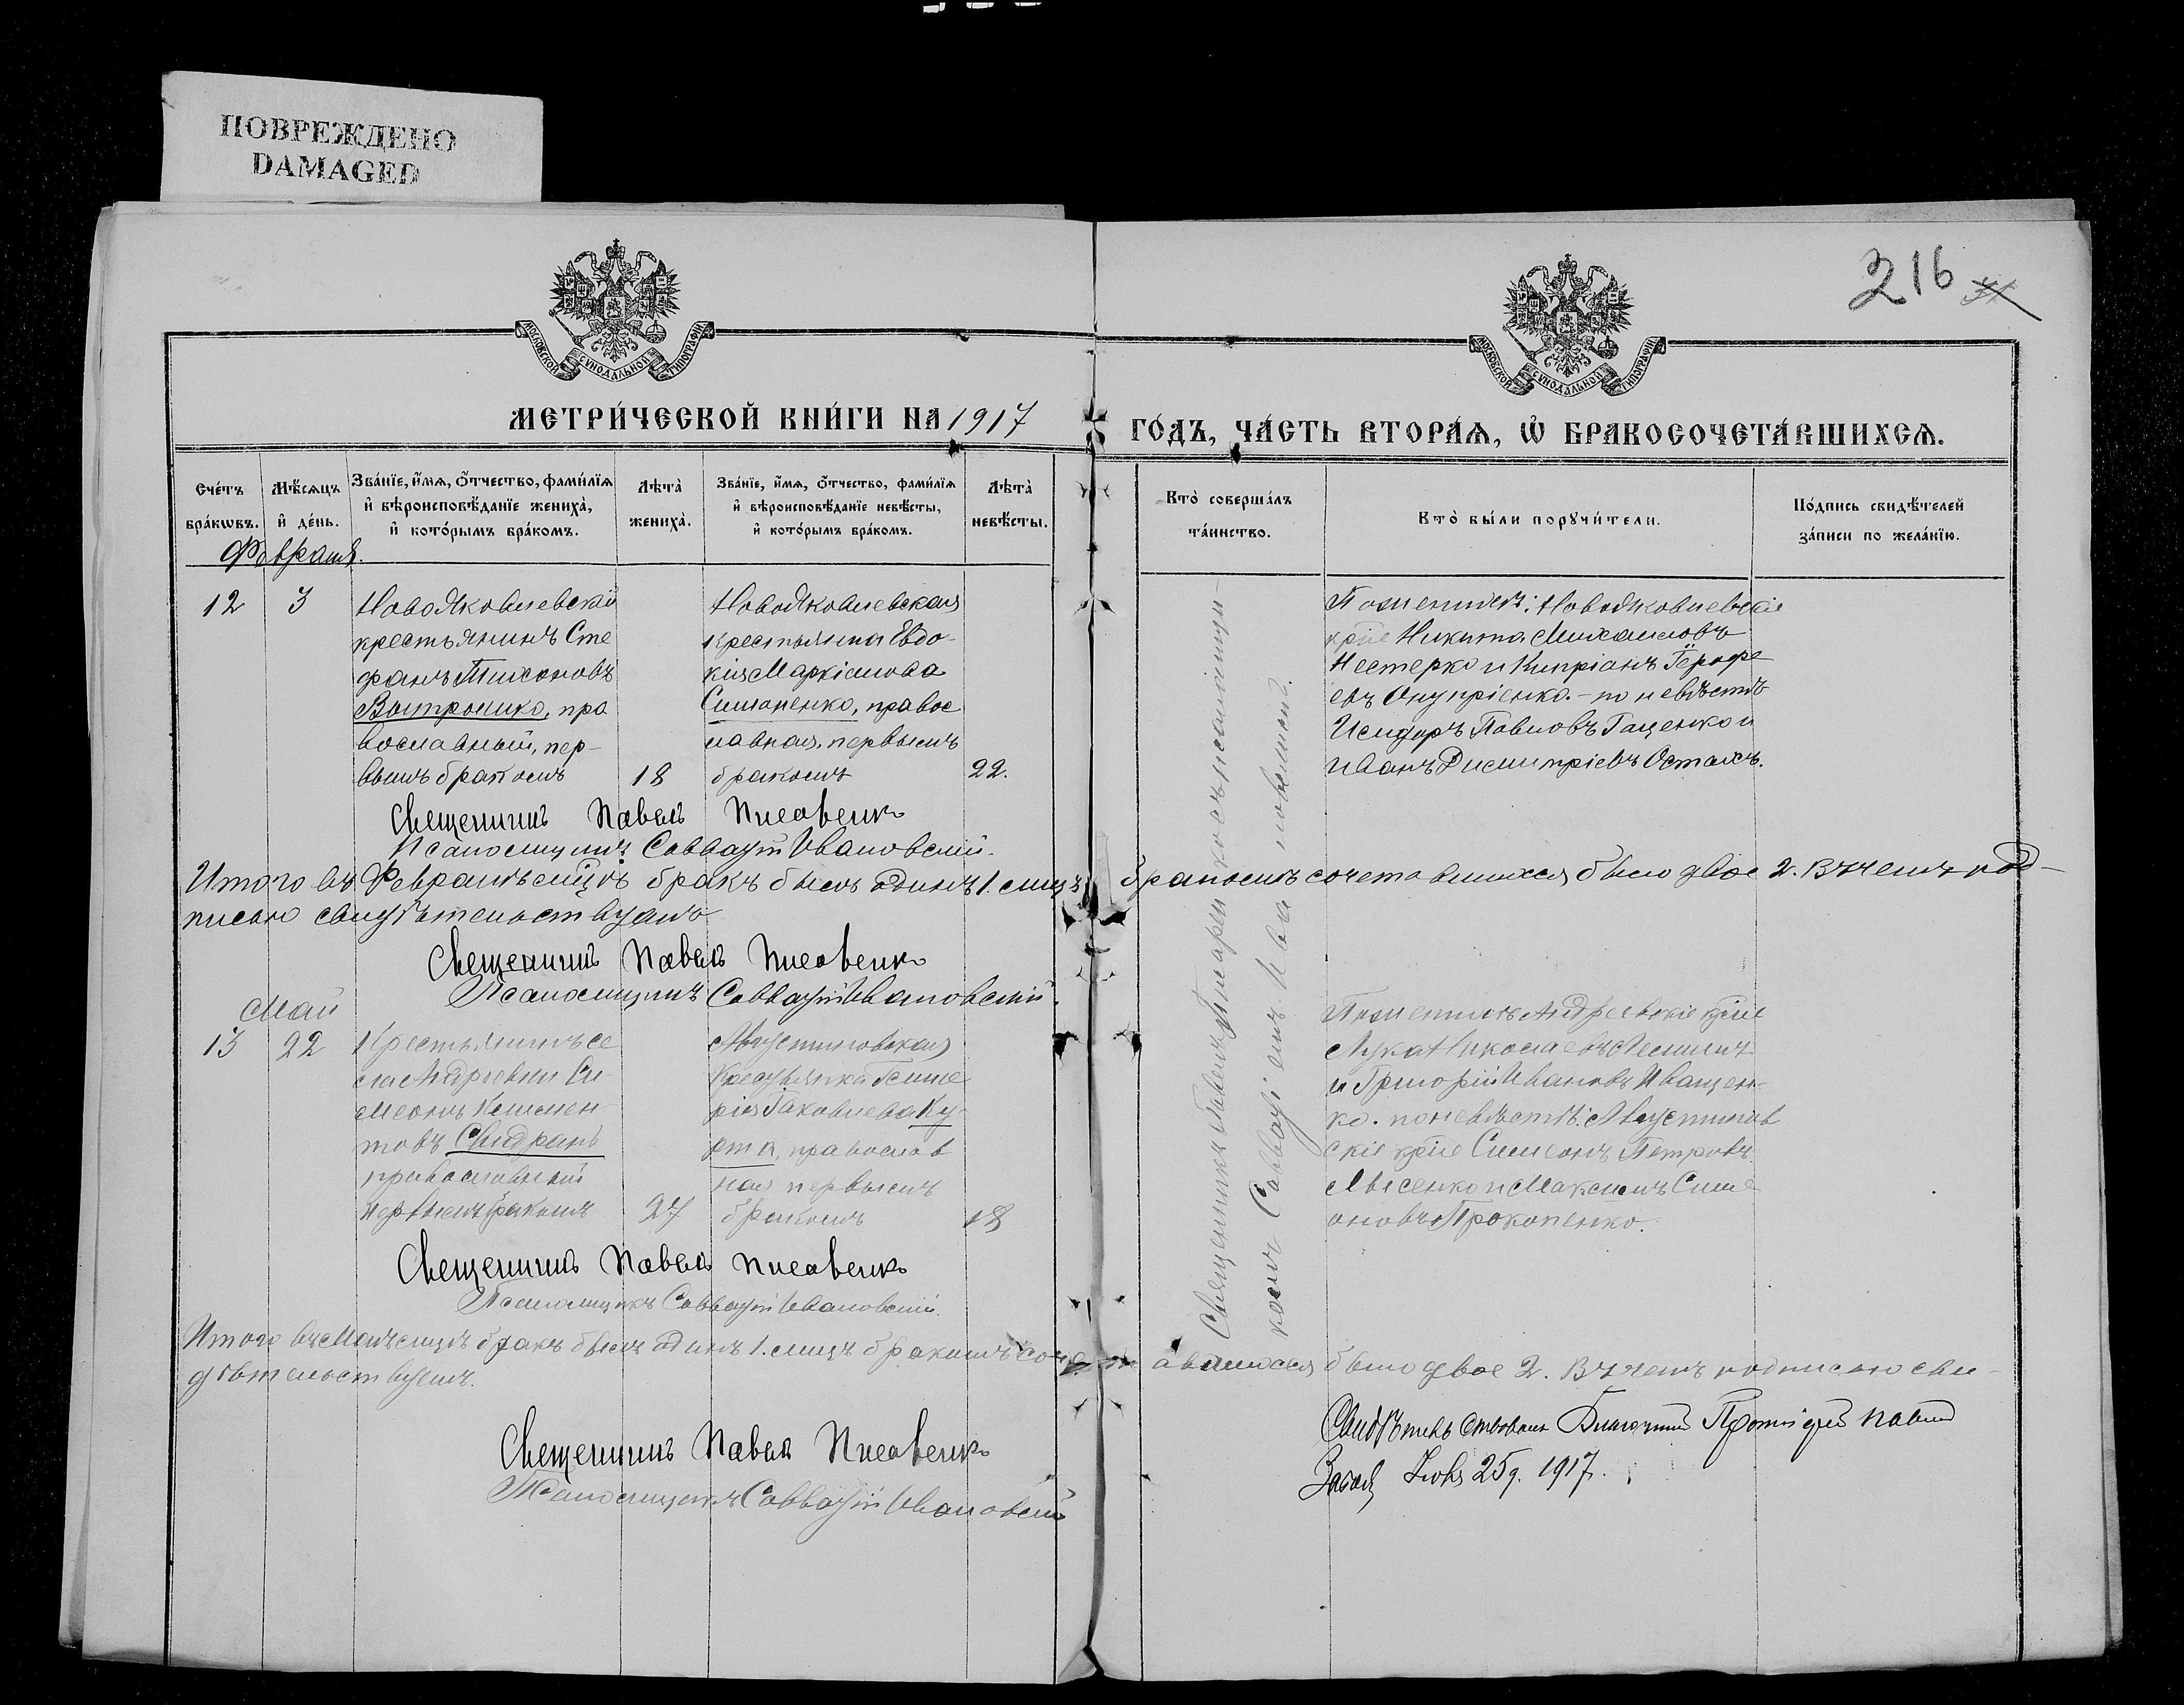 ПОВРЕЖДЕНО
DAMAGED
216
31
МОСКОВСКОЙ СѴНОДАЛЬНОЙ ТИПОГРАФІИ
МОСКОВСКОЙ СѴНОДАЛЬНОЙ ТИПОГРАФІИ
МЕТРИ́ЧЕСКОЙ КНИ́ГИ НА 1917
ГО́ДЪ, ЧА́СТЬ ВТОРА́Ѧ, Ѡ҆ БРАКОСОЧЕТА́ВШИХСѦ.
Сче́тъ бра́кѡвъ.
Мѣ́сѧцъ и҆ де́нь.
Зва́нїе, и҆́мѧ, ѻ҆́тчество, фами́лїѧ и҆ вѣроисповѣ́данїе жениха̀, и҆ кото́рымъ бра́комъ.
Лѣта̀ жениха̀.
Зва́нїе, и҆́мѧ, ѻ҆́тчество, фами́лїѧ и҆ вѣроисповѣ́данїе невѣ́сты, и҆ кото́рымъ бра́комъ.
Лѣта̀ невѣ́сты.
Кто̀ соверша́лъ та́инство.
Кто̀ бы́ли порꙋчи́тели.
По́дпись свидѣ́телей за́писи по жела́нїю.
Февраля.
12
3
НовоЯковлевскій
крестьянинъ Сте
фанъ Тихоновъ
пра
вославный, пер-
вымъ бракомъ
18
НовоЯковлевская
крестьянка Евдо-
кія Маркіанова
Симоненко, правос
лавная, первымъ
бракомъ
22.
По женихѣ: Новояковлевскіе
кр̃не Никита Михаиловъ
Нестерко и Кипріанъ Герофе
евъ Онупріенко. - по невѣстѣ
Исидоръ Павловъ Гаценко и
Иванъ Димитріевъ Осталъ.
Священникъ Павелъ Писаренко
Псаломщикъ Савватій Ивановскій.
Итого въ Февралѣ мѣц̃ѣ бракъ былъ одинъ 1. лицъ бракомъ сочетавшихся было двое 2. Въ чемъ под-
писью свидѣтельствуемъ
Священникъ Павелъ Писаренко
Псаломщикъ Савватій Ивановскій.
Май
13
22
Крестьянинъ се
ла Андреевки Си-
меонъ Климен-
товъ Свидранъ
православный
первымъ бракомъ
27
Августиновская
Крестьянка Глике
рія Іаковлева Ку-
рта, православ
ная первымъ
бракомъ
18
По женихѣ Андреевскіе кр̃не
Лука Николаевъ
и Григорій Ивановъ Иващен-
ко. по невѣстѣ: Августинов
скіе кр̃не Симеонъ Петровъ
Лысенко и Максимъ Симе
оновъ Прокопенко.
Священникъ Павелъ Писаренко съ псаломщи-
комъ Савватіемъ Ивановскимъ.
Священникъ Павелъ Писаренко
Псаломщикъ Савватій Ивановскій.
Итого въ Маѣ мѣсяцѣ бракъ былъ одинъ 1. лицъ бракомъ сочетавшихся было двое 2. Въ чемъ подписью сви-
дѣтельствуемъ.
Священникъ Павелъ Писаренко
Псаломщикъ Савватій Ивановскій
Свидѣтельствовалъ Благочинный Протоіерей Павелъ
25 д. 1917.